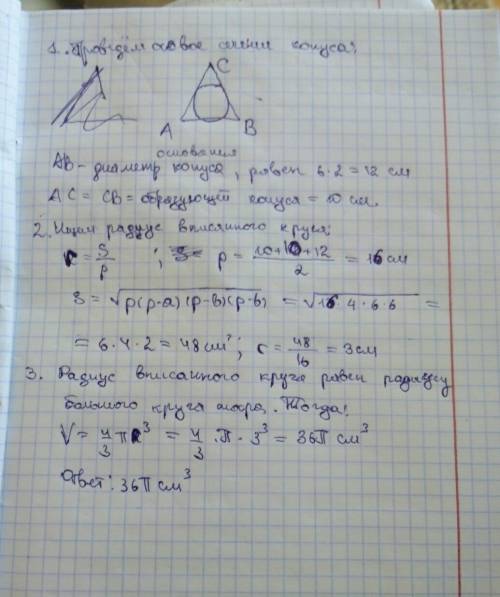 1. Проведём осевое сечение конуса:
C
A B
основания
AB - диаметр конуса, равен 6·2 = 12 см
AC = CB = образующей конуса = 10 см.
2. Ищем радиус вписанного круга:
r = S/p ; p = (10+10+12)/2 = 16 см
S = √(p(p-a)(p-b)(p-b)) = √(16·4·6·6) =
= 6·4·2 = 48 см²; r = 48/16 = 3 см
3. Радиус вписанного круга равен радиусу
большого круга шара. Тогда:
V = 4/3 πR³ = 4/3 · π · 3³ = 36π см³
Ответ: 36π см³